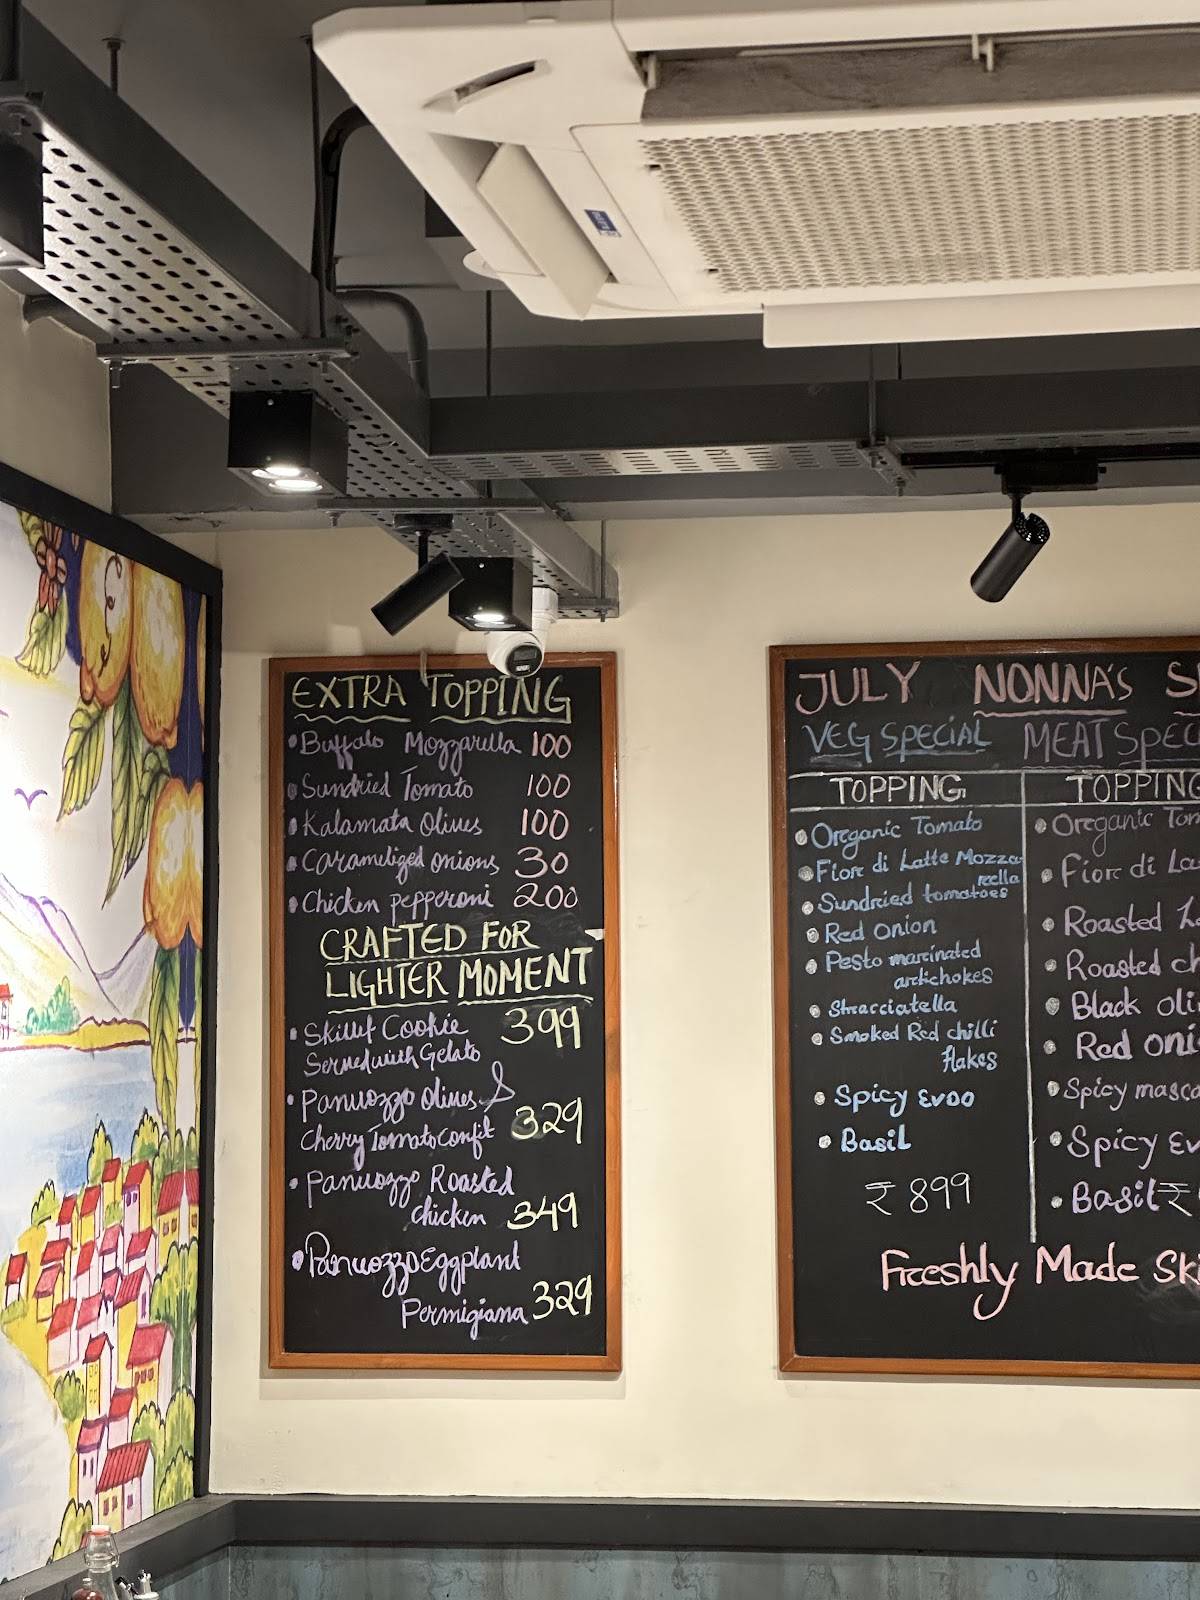 EXTRA TOPPING
Buffalo Mozzarella 100
Sundried Tomato 100
Kalamata Olives 100
Caramelized onions 30
Chicken pepperoni 200
CRAFTED FOR
LIGHTER MOMENT
Skillet Cookie 399
Served with Gelato
Panuozzo olives &
Cherry Tomato confit 329
Panuozzo Roasted
chicken 349
Panuozzo Eggplant
Permigiana 329
JULY NONNA'S
VEG SPECIAL MEAT
TOPPING
TOPPING
Oreganic Tomato
Fior di Latte Mozza
rella
Sundried tomatoes
Red Onion
Pesto marcinated
artichokes
Stracciatella
Smoked Red chilli
flakes
Spicy EVOO
Basil
₹ 899
Oreganic
Fior di
Roasted
Roasted
Black
Red
Spicy
Spicy
Basil ₹
Freeshly Made